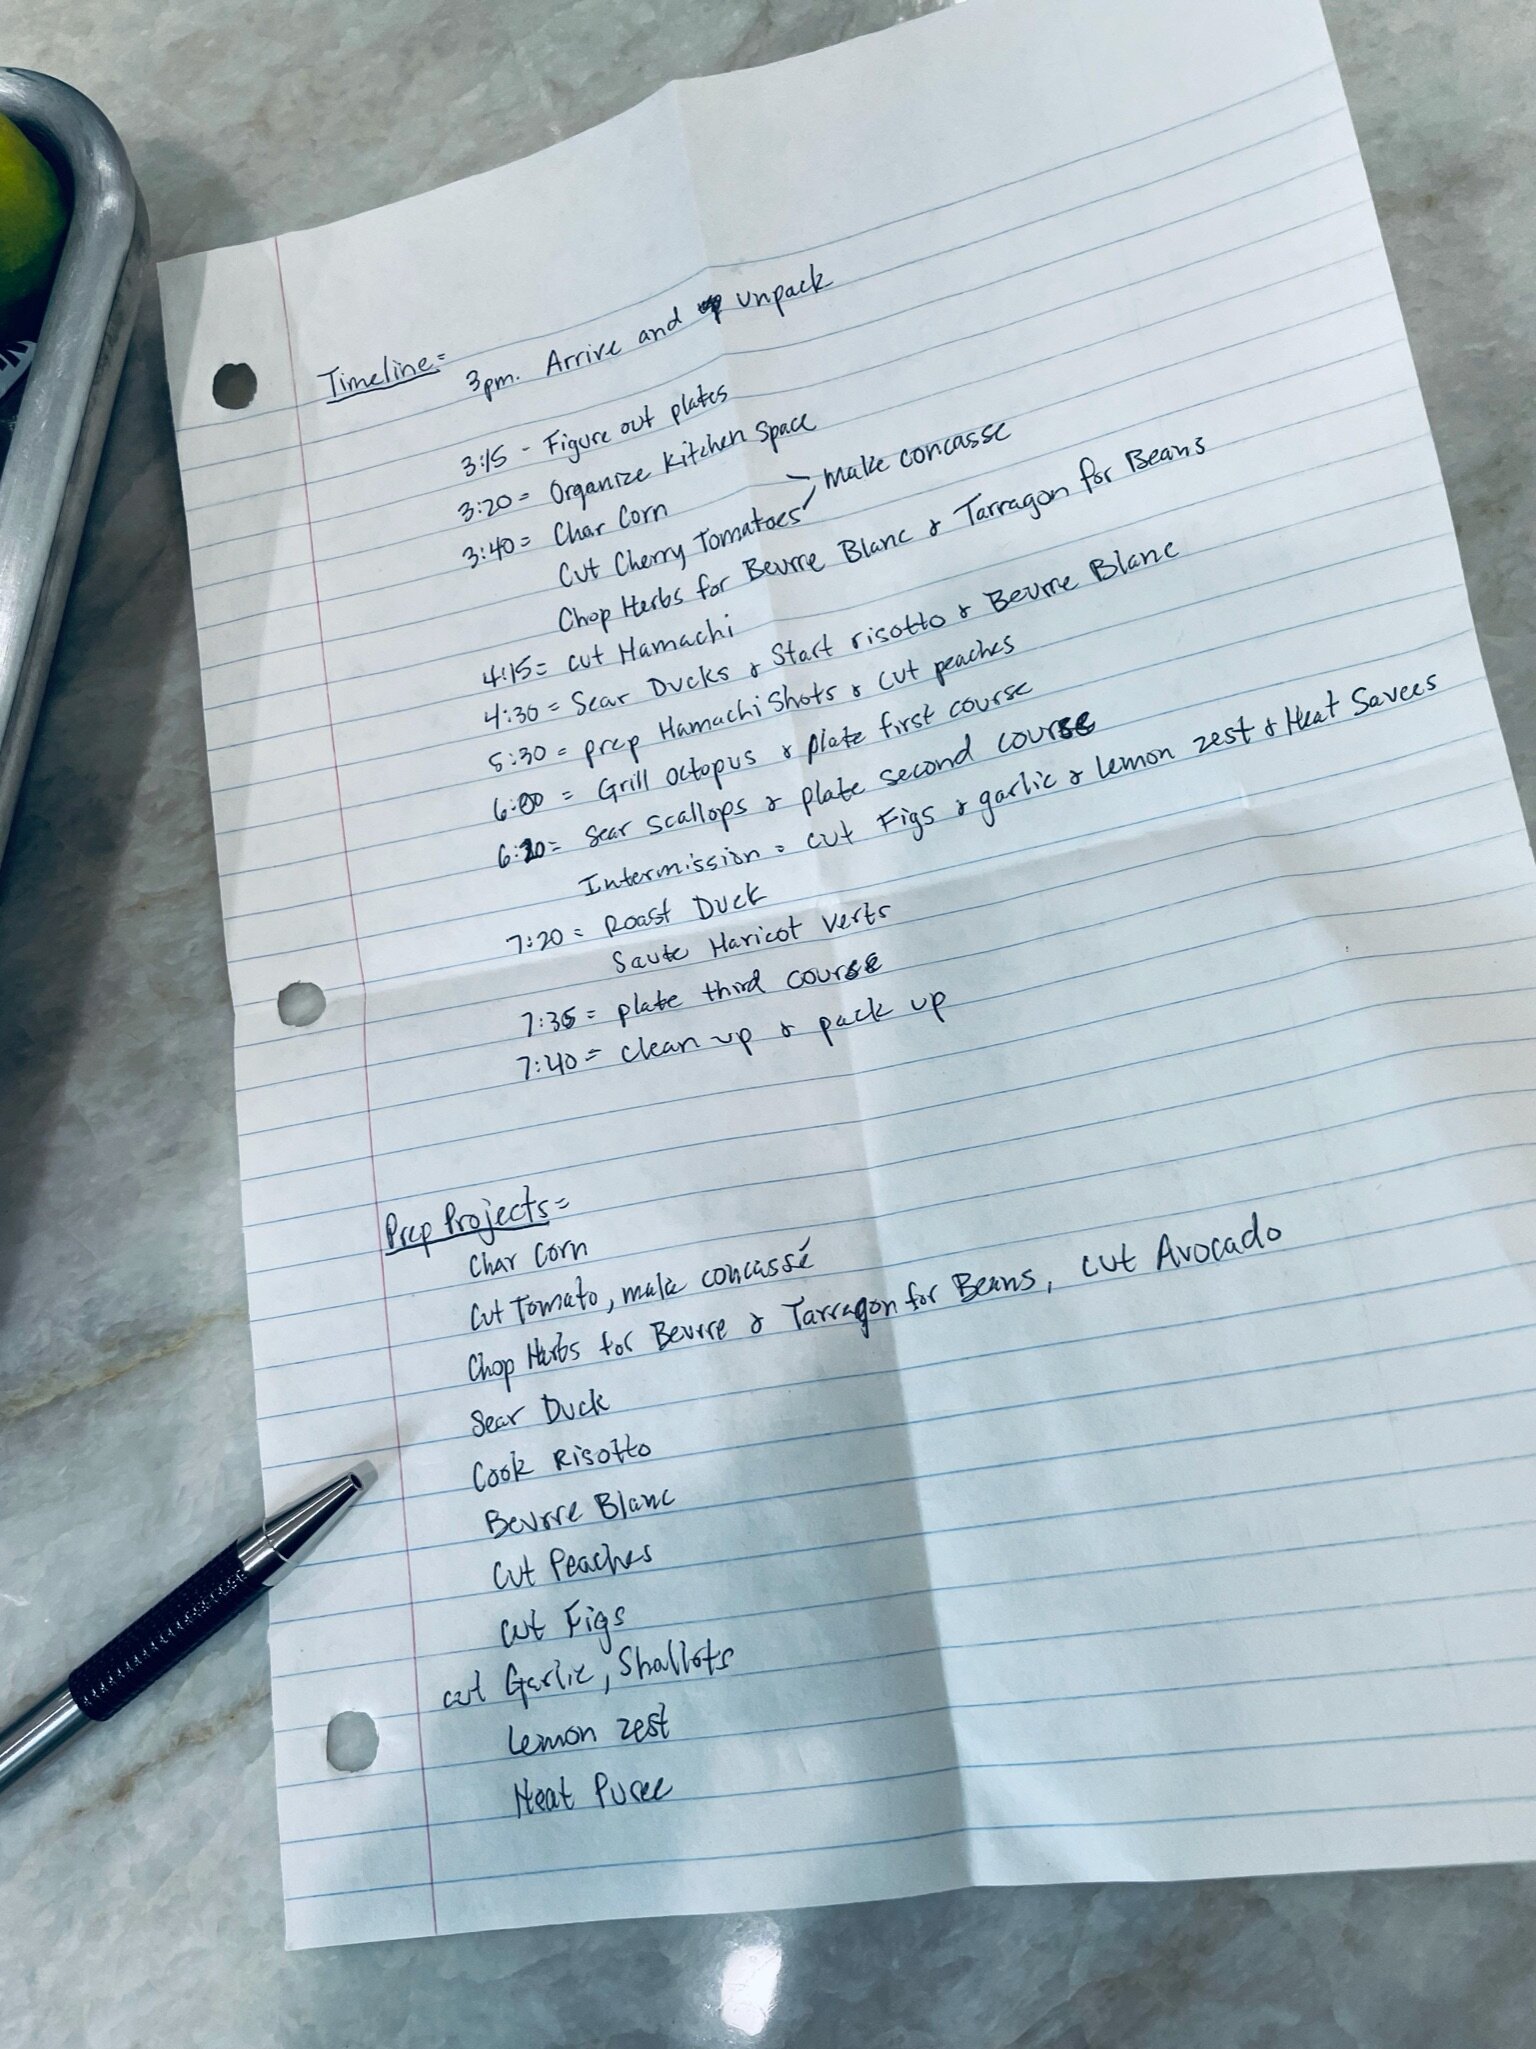 Timeline=
3pm. Arrive and unpack
3:15 - Figure out plates
3:20 = Organize Kitchen Space
3:40 = Char Corn
Cut Cherry Tomatoes > make concasse
Chop Herbs for Beurre Blanc & Tarragon for Beans
4:15 = cut Hamachi
4:30 = Sear Ducks & Start risotto & Beurre Blanc
5:30 = prep Hamachi Shots & cut peaches
6:00 = Grill octopus & plate first course
6:20 = Sear scallops & plate second course
Intermission = cut Figs & garlic & lemon zest & Heat Savees
7:20 = Roast Duck
Saute Haricot Verts
7:35 = plate third course
7:40 = clean up & pack up
Prep Projects=
Char Corn
Cut Tomato, make concassé
Chop Herbs for Beurre & Tarragon for Beans, cut Avocado
Sear Duck
Cook Risotto
Beurre Blanc
Cut Peaches
cut Figs
cut Garlic, Shallots
Lemon zest
Heat Puree